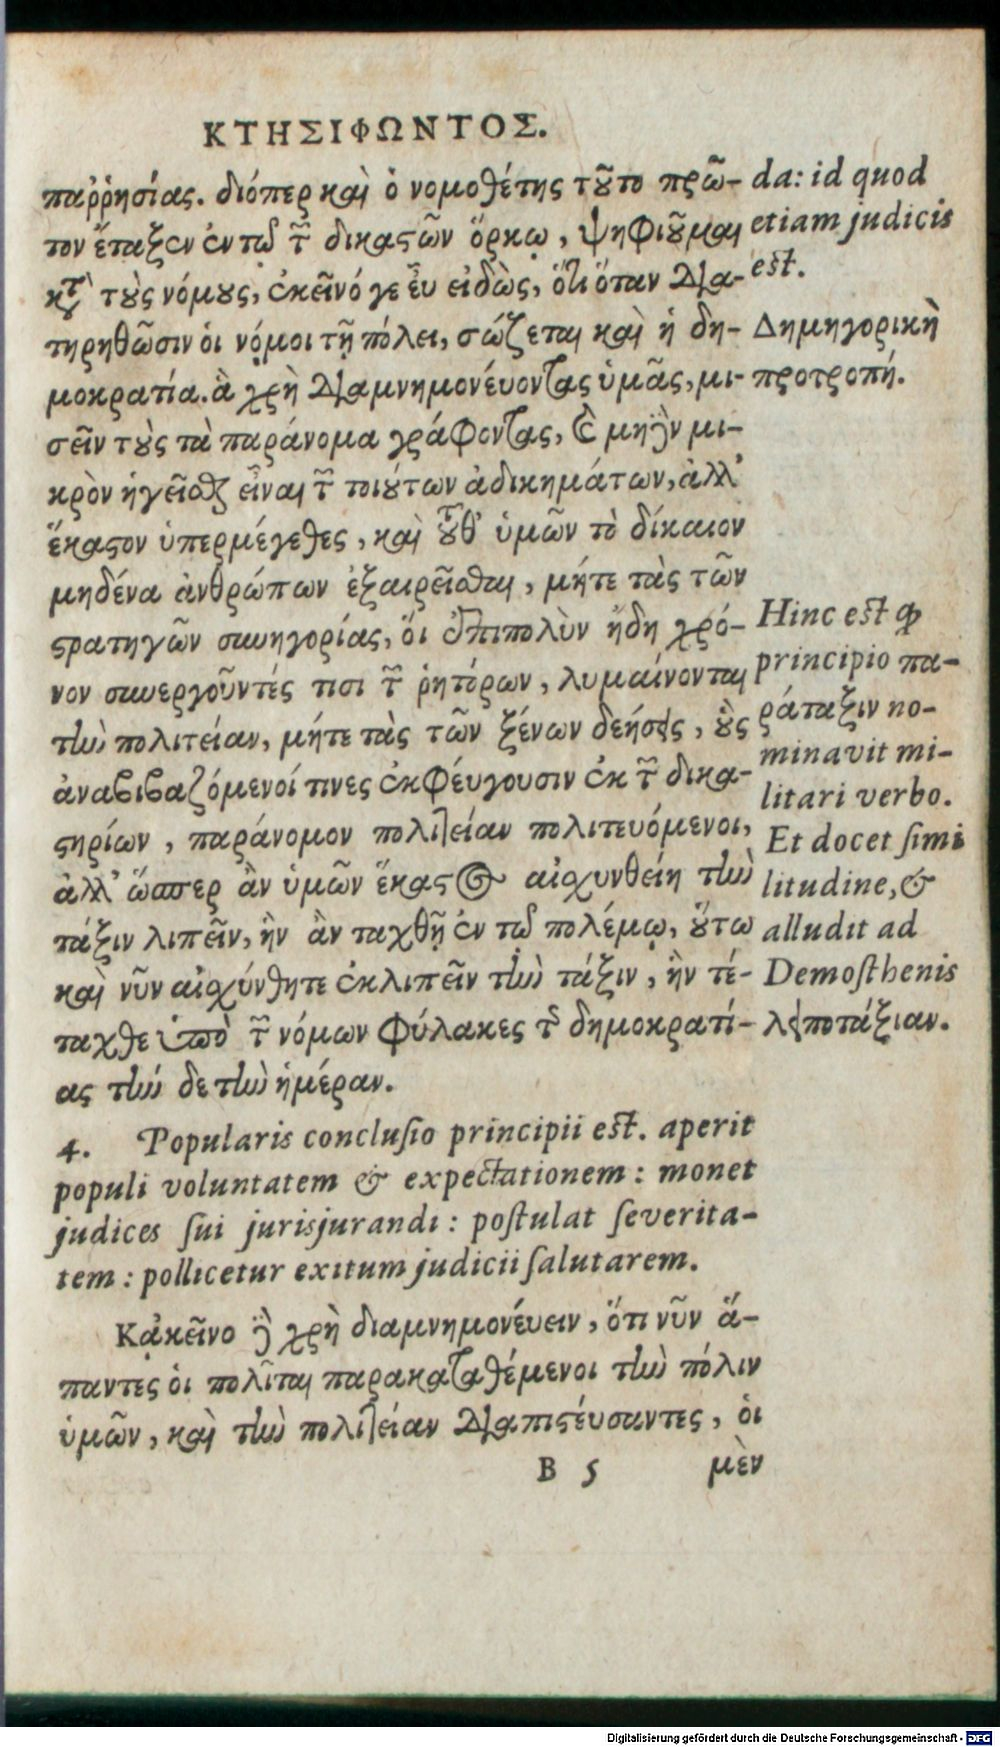 ΚΤΗΣΙΦΩΝΤΟΣ.
παῤῥησίας. διόπερ καὶ ὁ νομοθέτης τοῦτο πρῶ-
τον ἔταξεν ἐν τῷ τῶν δικαστῶν ὅρκῳ, ψηφιοῦμαι
κατὰ τοὺς νόμους, ἐκεῖνό γε εὖ εἰδὼς, ὅτι ὅταν δια-
τηρηθῶσιν οἱ νόμοι τῇ πόλει, σώζεται καὶ ἡ δη-
μοκρατία. ἃ χρὴ διαμνημονεύοντας ὑμᾶς, μι-
σεῖν τοὺς τὰ παράνομα γράφοντας, καὶ μηδὲν μι-
κρὸν ἡγεῖσθαι εἶναι τῶν τοιούτων ἀδικημάτων, ἀλλ'
ἕκαστον ὑπερμέγεθες, καὶ τοῦθ' ὑμῶν τὸ δίκαιον
μηδένα ἀνθρώπων ἐξαιρεῖσθαι, μήτε τὰς τῶν
στρατηγῶν συνηγορίας, ὅι ἐπιπολὺν ἤδη χρό-
νον συνεργοῦντές τισι τῶν ῥητόρων, λυμαίνονται
τὴν πολιτείαν, μήτε τὰς τῶν ξένων δεήσεις, οὓς
ἀναβιβαζόμενοί τινες ἐκφέυγουσιν ἐκ τῶν δικα-
στηρίων, παράνομον πολιτείαν πολιτευόμενοι,
ἀλλ' ὥσπερ ἂν ὑμῶν ἕκαστος αἰσχυνθείη τὴν
τάξιν λιπεῖν, ἣν ἂν ταχθῇ ἐν τῷ πολέμῳ, οὕτω
καὶ νῦν αἰσχύνθητε ἐκλιπεῖν τὴν τάξιν, ἣν τέ-
ταχθε ὑπὸ τῶν νόμων φύλακες τῆς δημοκρατί-
ας τήν δε τὴν ἡμέραν.
4. Popularis conclusio principii est. aperit
populi voluntatem & expectationem: monet
judices sui jurisjurandi: postulat severita-
tem: pollicetur exitum judicii salutarem.
Κᾀκεῖνο δὲ χρὴ διαμνημονέυειν, ὅτι νῦν ἅ-
παντες οἱ πολῖται παρακαταθέμενοι τὴν πόλιν
ὑμῶν, καὶ τὴν πολιτείαν διαπιστέυσαντες, οἱ
B 5 μὲν
da: id quod
etiam judicis
est.
Δημηγορικὴ
προτροπή.
Hinc est quod
principio πα-
ράταξιν no-
minavit mi-
litari verbo.
Et docet simi
litudine, &
alludit ad
Demosthenis
λειποτάξιαν.
Digitalisierung gefördert durch die Deutsche Forschungsgemeinschaft - DFG